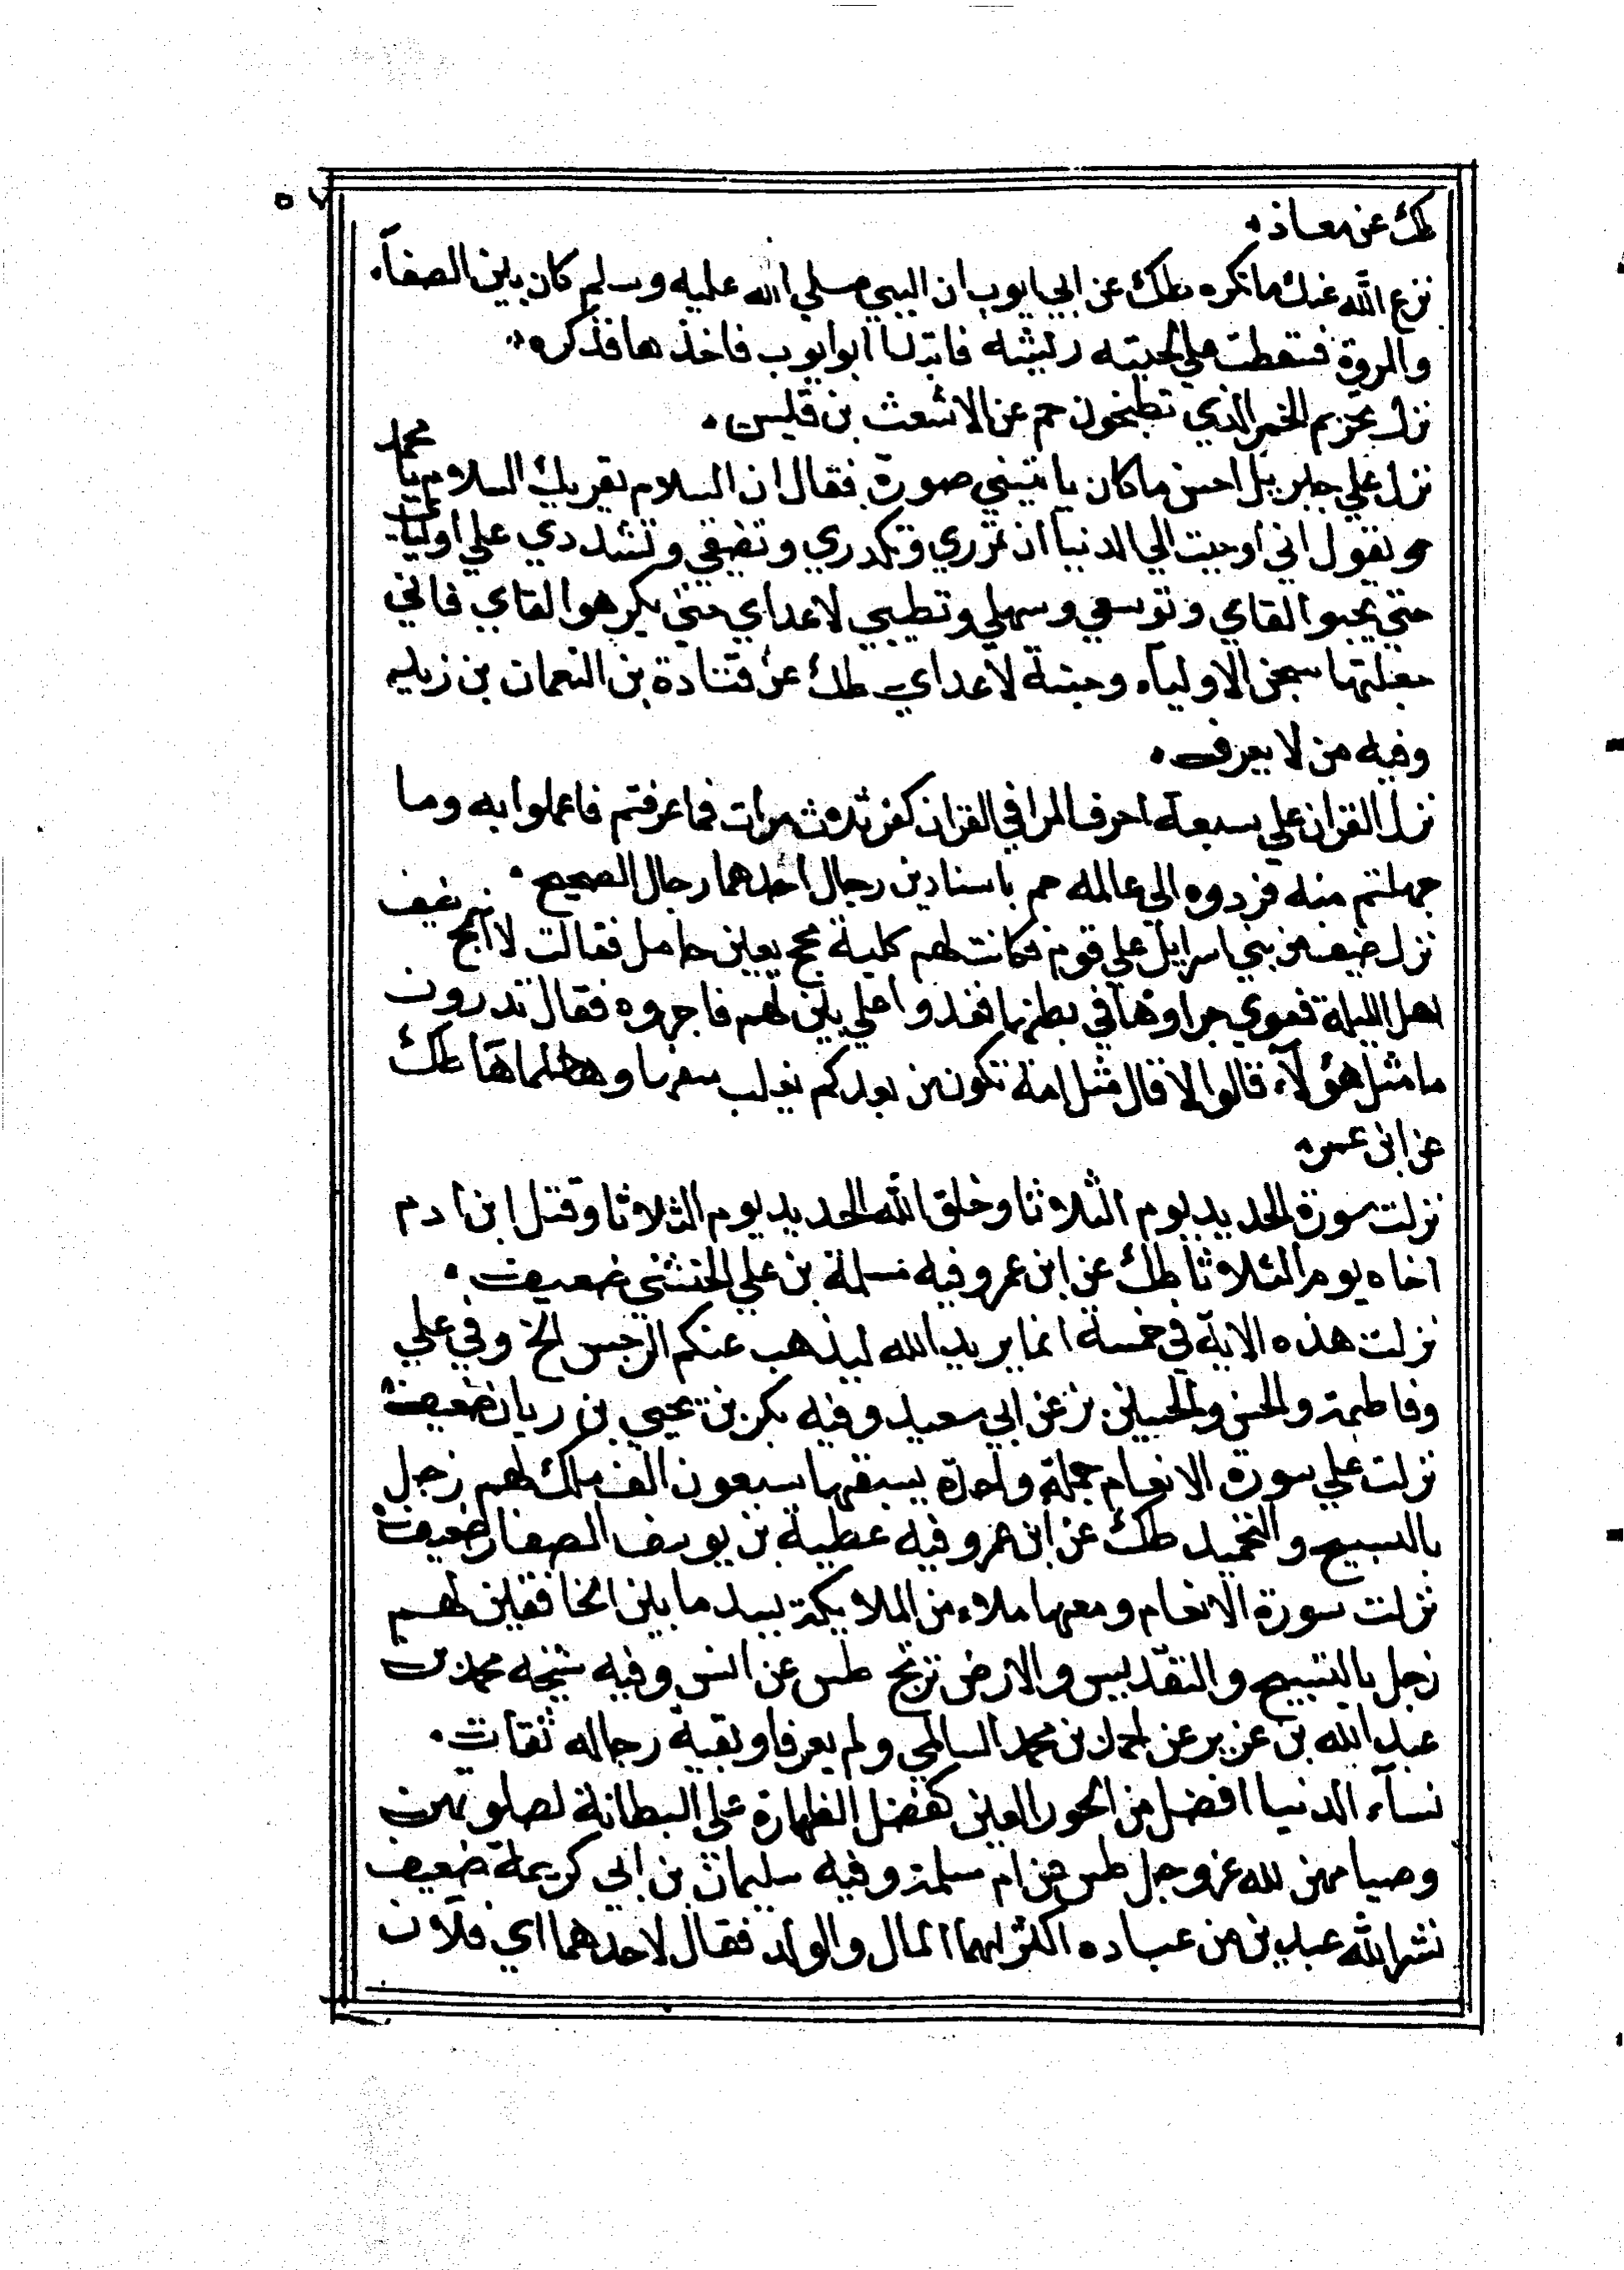 ٥٧
طك عن معاذ.
نزع الله عنك ما تكره طك عن ابي ايوب ان النبي صلي الله عليه وسلم كان بين الصفآ.
والمروة فسقطت علي لحيته ريشه فابتدرا ابو ايوب فاخذ ها فذكره.
نزل تحريم الخمر الذي تطبخون حم عن الاشعث بن قيس.
نزل علي جبريل احسن ما كان ياتيني صورة فقال ان السلام يقريك السلام يا محمد
ويقول اني اوحيت الي الدنيا ان تمرري وتكدري وتضيقي وتشددي علي اوليائ
حتي يحبوا لقاي وتوسعي وسهلي وتطيبي لاعداي حتي يكرهوا لقاي فاني
جعلتها سجن الاولياء وجنة لاعداي طك عن قتادة بن النعمان بن زيد
وفيه من لا يعرف.
نزل القران علي سبعة احرف المرا في القران كفر ثلاث مرات فما عرفتم فاعملوا به وما
جهلتم منه فردوه الي عالمه حم باسنادين رجال احدهما رجال الصحيح.
نزل ضيف من بني اسرايل علي قوم فكانت لهم كلبة مجح يعني حامل فقالت لا انبح
اهل الليلة فعوي جراوها في بطنها فغدوا علي لهم فاخبروه فقال تدرون
ما مثل هؤلآء قالوا لا قال مثل امة تكون من بعدكم يغلب علماها طك
عن ابن عمر.
نزلت سورة الحديد يوم الثلاثا وخلق الله الحديد يوم الثلاثا وقتل ابن ادم
اخاه يوم الثلاثا طك عن ابن عمر وفيه مسلمة بن علي الخشني ضعيف.
نزلت هذه الاية في خمسة انما يريد الله ليذهب عنكم الرجس الخ وفي علي
وفاطمة والحسن والحسين بز عن ابي سعيد وفيه بكر بن يحيي بن ريان ضعيف
نزلت علي سورة الانعام جملة واحدة يسبقها سبعون الف ملك لهم زجل
بالتسبيح والتحميد طك عن ابن عمر وفيه عطية بن يوسف الصفار ضعيف
نزلت سورة الانعام ومعها ملاء من الملايكة يسد ما بين الخافقين لهم
زجل بالتسبيح والتقديس والارض ترتج طس عن انس وفيه شيخه محمد بن
عبد الله بن عزير عن احمد بن محمد السالمي ولم يعرفا وبقية رجاله ثقات.
نسآء الدنيا افضل من الحور العين كفضل الظهارة علي البطانة لصلوتهن
وصيامهن لله عز وجل طس عن ام سلمة وفيه سليمان بن ابي كريمة ضعيف
نشر الله عبدين من عباده اكثر لهما المال والولد فقال لاحدهما اي فلان